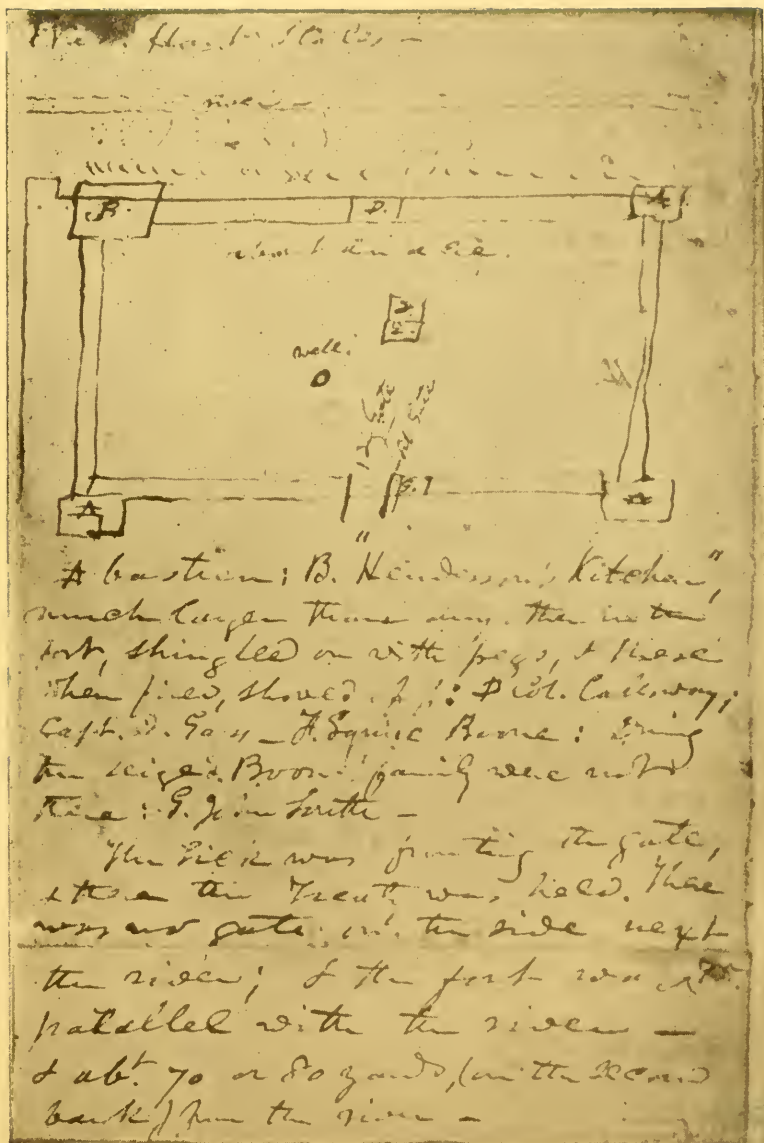 river
B.
D.
A
about an acre.
2
2
well.
gate
K
A
G.
A
A bastion; B. "Henderson's Kitchen",
much larger than any other in the
fort, shingled on with pegs, & these
when fired, shoved off: D Col. Callaway;
Capt. D. Gass — F. Squire Boone: During
the seige D. Boone's family were not
there: G. Jim Smith —
The Lick was fronting the gate,
where the Treaty was held. There
was no gate on the side next
the river; & the fort was
parallel with the river —
& abt. 70 or 80 yards, (on the second
bank) from the river —